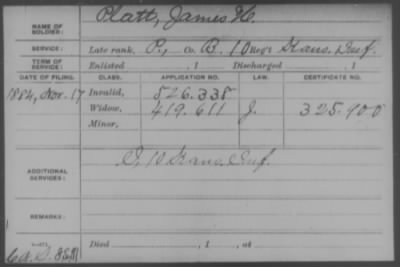 Platt, James H.
NAME OF SOLDIER:
SERVICE: Late rank, P., Co. B, 10 Reg't Kans. Inf.
TERM OF SERVICE: Enlisted , 1 Discharged , 1
DATE OF FILING. CLASS. APPLICATION NO. LAW. CERTIFICATE NO.
1884, Nov. 17 Invalid, 526.338
Widow, 419.611 J. 325.900
Minor,
10 Kans. Inf.
ADDITIONAL SERVICES:
REMARKS:
Died , 1 , at